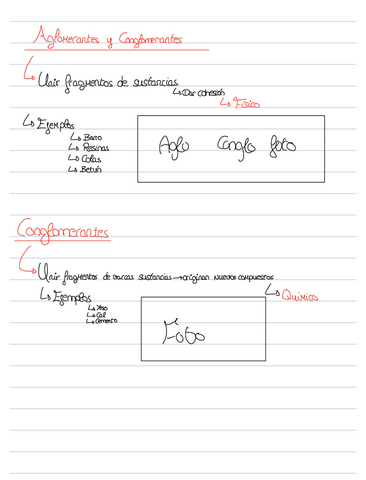 Aglomerantes y Conglomerantes
Unir fragmentos de sustancias
Dar cohesión
Físico
Ejemplos
Barro
Resinas
Colas
Betún
Aglo Conglo foto
Conglomerantes
Unir fragmentos de varias sustancias → originan nuevos compuestos
Químico
Ejemplos
Yeso
Cal
Cemento
Foto